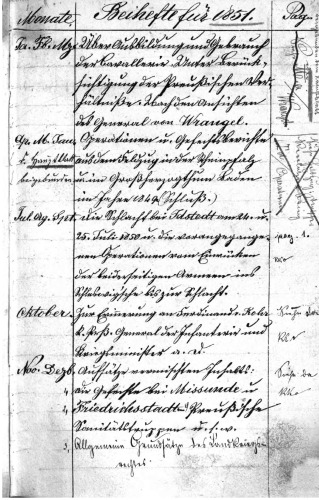 Monate. Beihefte für 1851. Pag.
Ja. Fb. Mz. Über Ausbildung und Gebrauch
der Cavallerie. Unter Berück-
sichtigung der Preußischen Ver-
hältniße. Nach den Ansichten
des General von Wrangel.
Ap. M. Jun. Operationen u. Gefechtsberichte
aus dem Feldzug in der Rheinpfalz
u. im Großherzogthum Baden
im Jahre 1849 (Schluß.)
Jul. Aug. Spt. Die Schlacht bei Idstedt am 24. u.
25. Juli 1850 u. die vorangegange-
nen Operationen vom Einrücken
der beiderseitigen Armeen ins
Schleswigsche bis zur Schlacht.
Oktober. Zur Erinnerung an Ferdinand v. Rohr
k. Prß. General der Infanterie und
Kriegsminister a. D.
Nov. Dezb. Aufsätze vermischten Inhalts:
die Gefechte bei Missunde u
Friedrichsstadt Preußische
Sanitätstruppen u. s. w.
3. Allgemeine Grundsätze des Landkriegs-
rechtes.